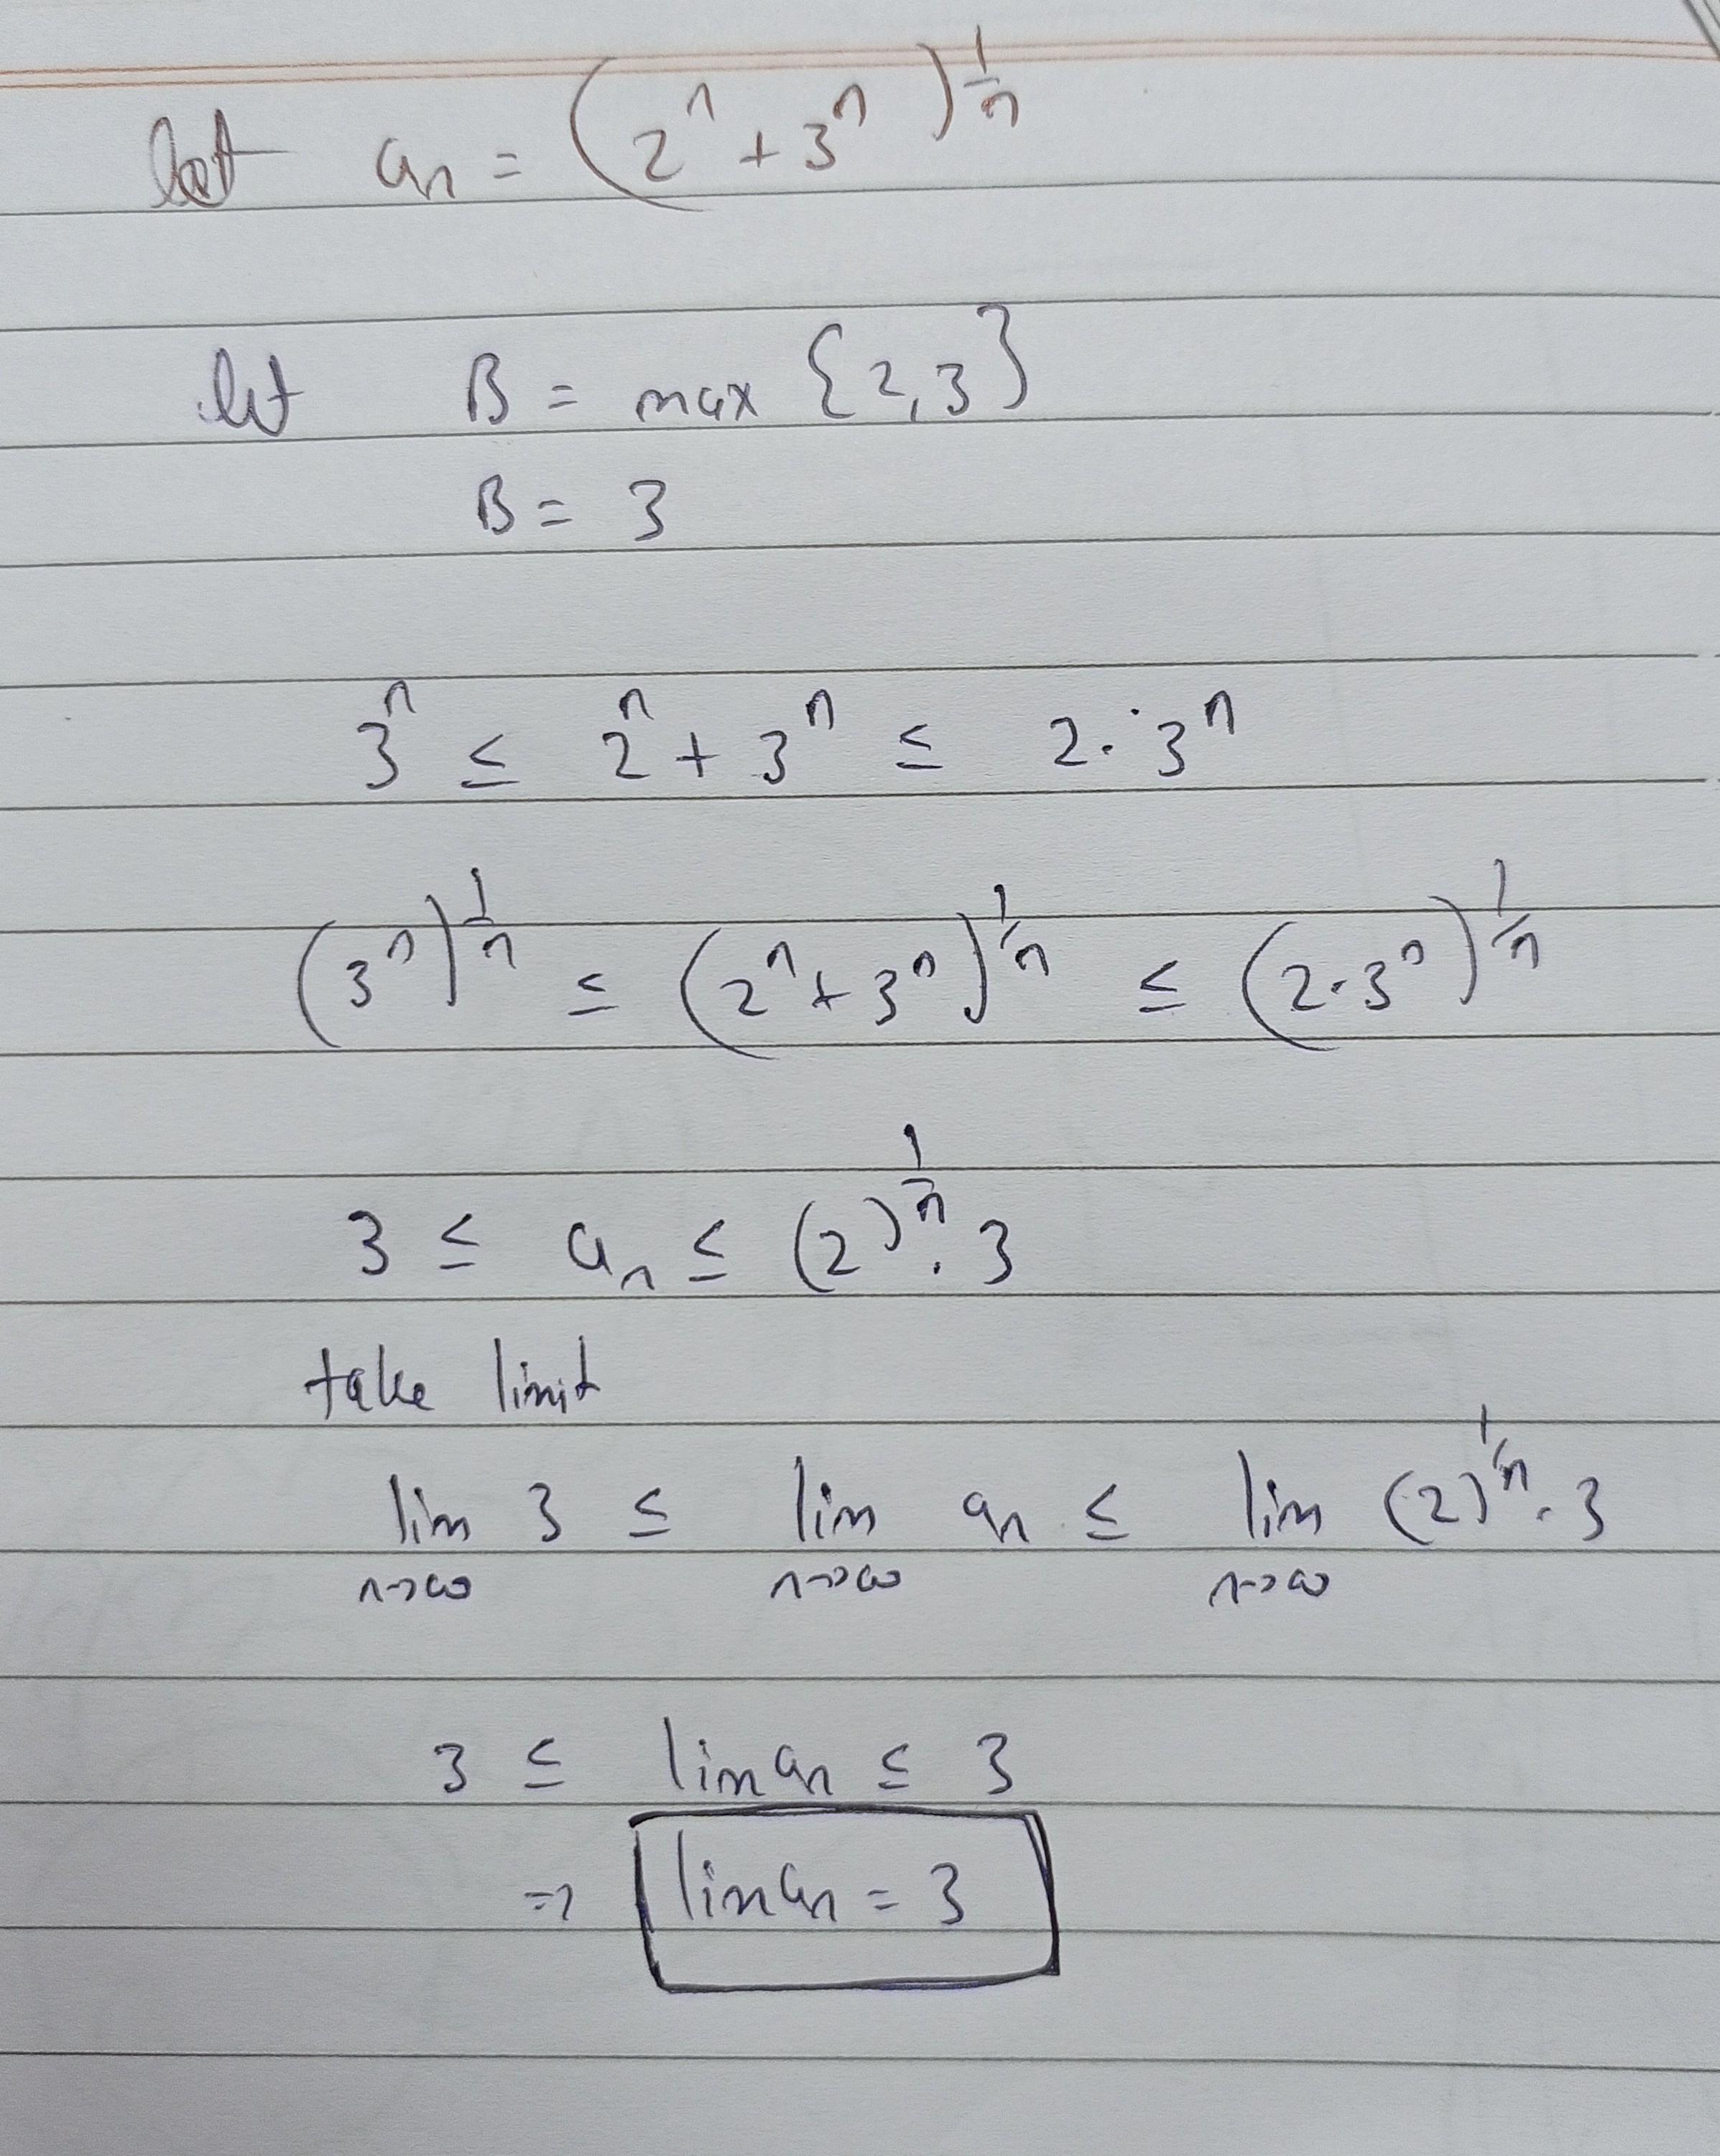 let an = (2^n + 3^n)^1/n
let B = max {2,3}
B = 3
3^n ≤ 2^n + 3^n ≤ 2·3^n
(3^n)^1/n ≤ (2^n + 3^n)^1/n ≤ (2·3^n)^1/n
3 ≤ an ≤ (2)^1/n · 3
take limit
lim n→∞ 3 ≤ lim n→∞ an ≤ lim n→∞ (2)^1/n · 3
3 ≤ lim an ≤ 3
⇒ lim an = 3